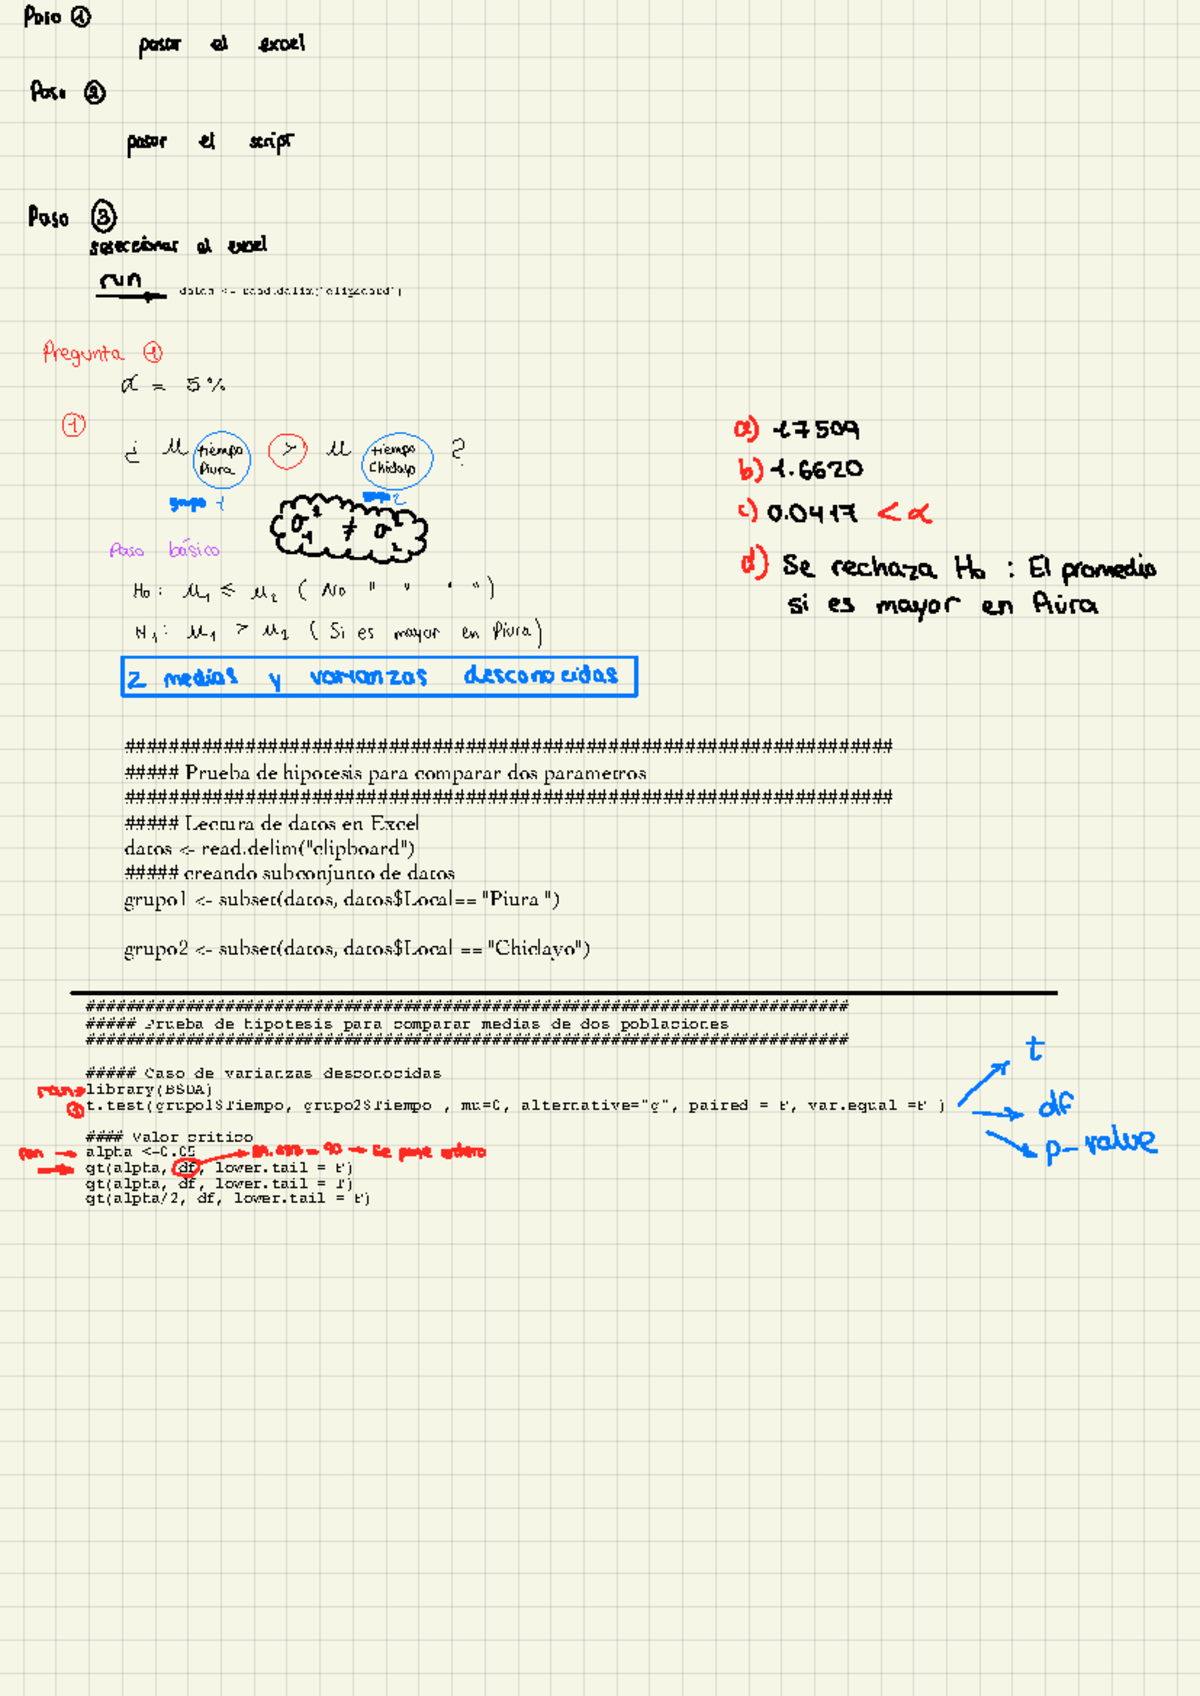 Paso ①
pasar el excel
Paso ②
pasar el script
Paso ③
seleccionar el excel
run
datos <- read.delim("clipboard")
Pregunta ①
α = 5%
①
¿ μ tiempo Piura > μ tiempo Chiclayo ?
grupo 1 grupo 2
σ²₁ ≠ σ²₂
Paso básico
H₀: μ₁ ≤ μ₂ ( No " " " ")
H₁: μ₁ > μ₂ ( Si es mayor en Piura)
2 medias y varianzas desconocidas
a) 1.7509
b) 1.6620
c) 0.0417 < α
d) Se rechaza H₀ : El promedio
si es mayor en Piura
######################################################################
##### Prueba de hipotesis para comparar dos parametros
######################################################################
##### Lectura de datos en Excel
datos <- read.delim("clipboard")
##### creando subconjunto de datos
grupo1 <- subset(datos, datos$Local== "Piura ")
grupo2 <- subset(datos, datos$Local == "Chiclayo")
######################################################################
##### Prueba de hipotesis para comparar medias de dos poblaciones
######################################################################
##### Caso de varianzas desconocidas
run→ library(BSDA)
② t.test(grupo1$Tiempo, grupo2$Tiempo , mu=0, alternative="g", paired = F, var.equal =F )
t
df
p-value
#### Valor critico
run → alpha <-0.05
→ qt(alpha, df, lower.tail = F)
qt(alpha, df, lower.tail = T)
qt(alpha/2, df, lower.tail = F)
= 90 → Se pone entero